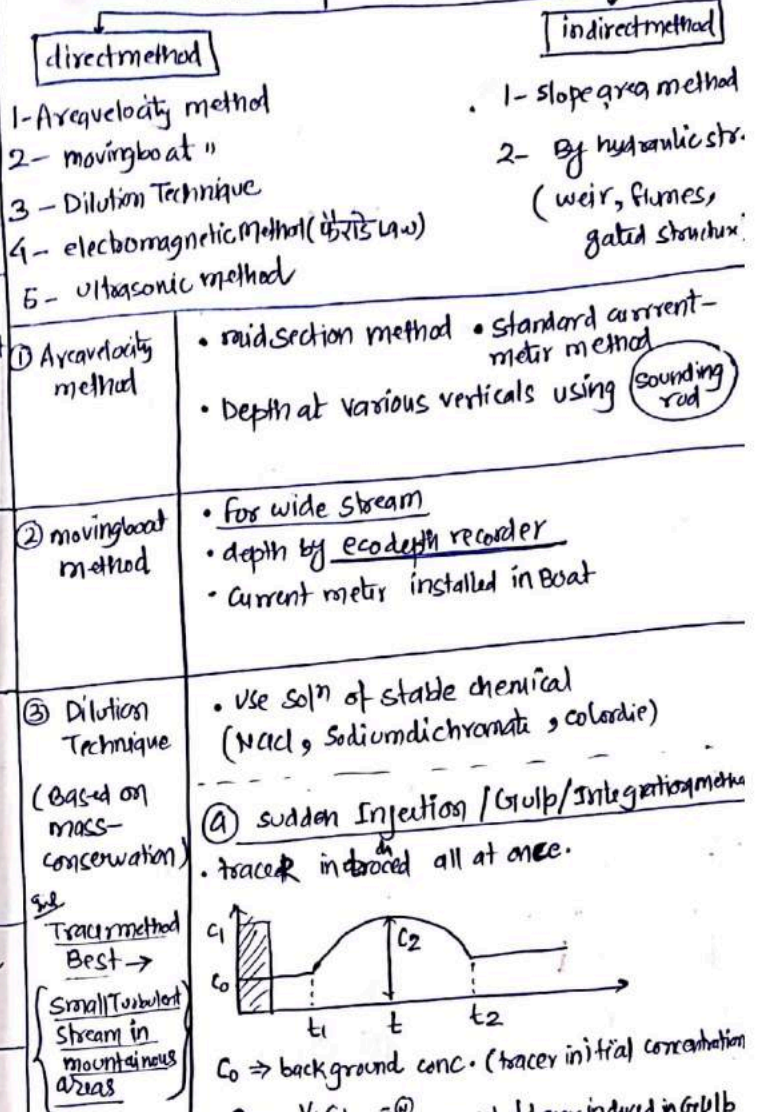 directmethod
indirectmethod
1-Areavelocity method
2- movingboat "
3 - Dilution Technique
4- elecbomagnetic Method (फैराडे Law)
5- Ultrasonic method
1- slopearea method
2- By hydraulic str.
(weir, flumes,
gated structure
① Areavelocity
method
• midsection method • standard current-
meter method
• Depth at various verticals using sounding
rod
② movingboat
method
• for wide stream
• depth by ecodepth recorder
• current meter installed in Boat
③ Dilution
Technique
(Based on
mass-
conservation)
Tracermethod
Best →
Small Turbulent
stream in
mountainous
areas
• Use solⁿ of stable chemical
(Nacl, Sodiumdichromate, colordie)
ⓐ sudden Injection / Gulp/Integration
• tracer all at once.
C1
C0
C2
t1 t t2
C0 ⇒ background conc. (tracer initial concentration
induced in Gulb